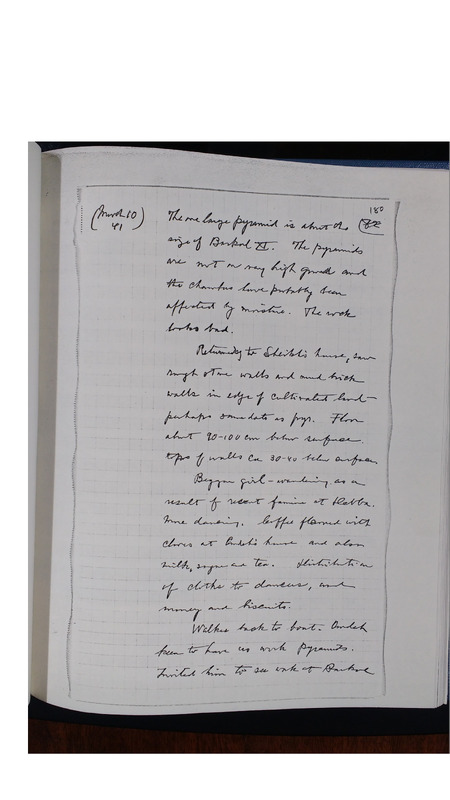 180
(March 10
41)
The one large pyramid is about the
size of Barkal XI. The pyramids
are not on very high ground and
the chambers have probably been
affected by moisture. The rock
looks bad.
Returned to Sheikh's house, saw
rough stone walls and mud brick
walls in edge of cultivated land -
perhaps same date as pyrs. Floor
about 90-100 cm below surface.
tops of walls ca 30-40 below surface.
Beggar girl - wandering as a
result of recent famine at
More dancing. Coffee flavored with
cloves at house and also
milk, sugar and tea. Distribution
of cloths to dancers, and
money and biscuits.
Walked back to boat.
keen to have us work pyramids.
Invited him to see work at Barkal